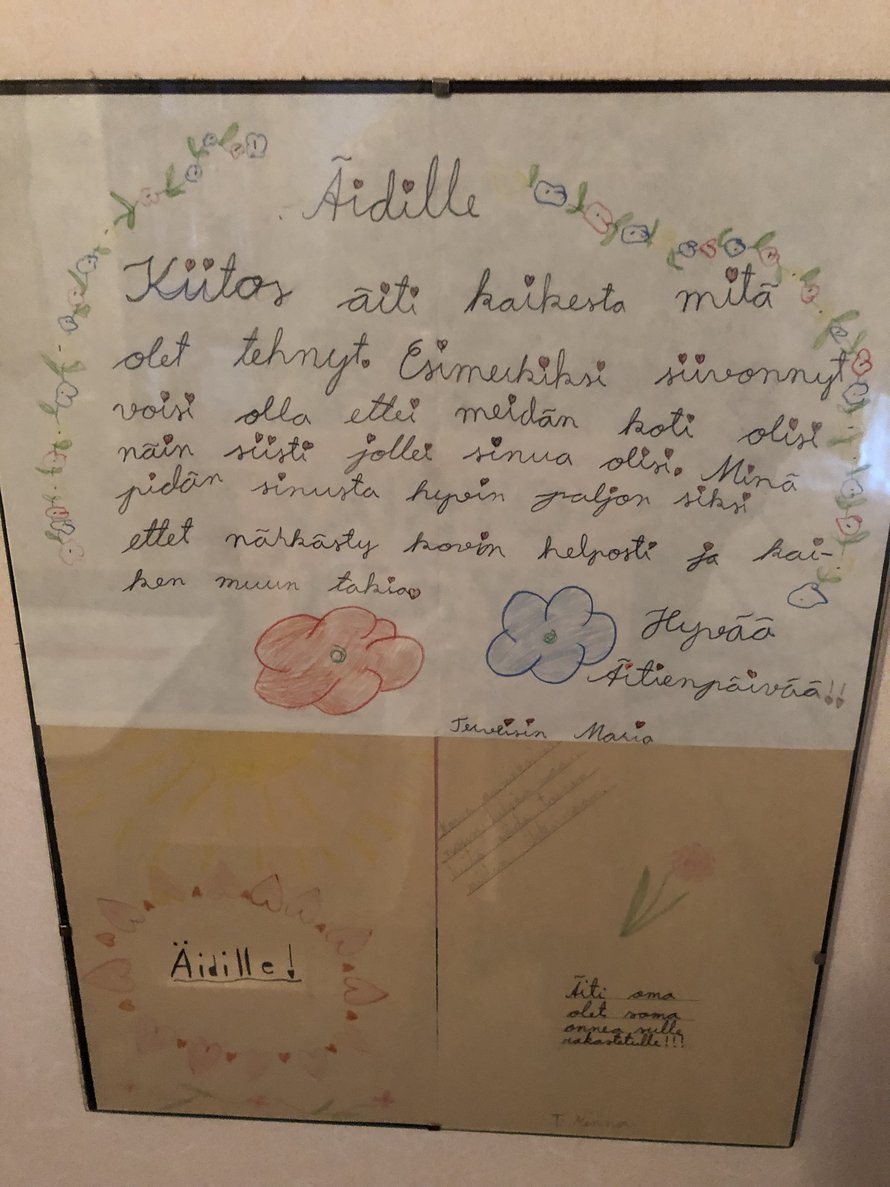 Äidille
Kiitos äiti kaikesta mitä
olet tehnyt. Esimerkiksi siivonnyt
voisi olla ettei meidän koti olisi
näin siisti jollei sinua olisi. Minä
pidän sinusta hyvin paljon siksi
ettet närkästy kovin helposti ja kai-
ken muun takia.
Hyvää
Äitienpäivää!!
Terveisin Maria
Äidille!
Äiti oma
olet soma
onnea sulle
rakastetulle!!!
T. Minna